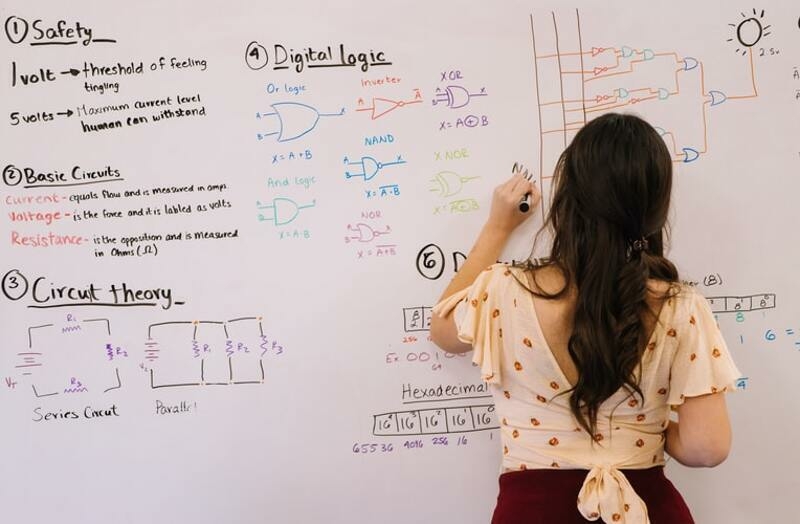 ① Safety
1 volt → threshold of feeling
tingling
5 volts → Maximum current level
human can withstand
② Basic Circuits
Current - equals flow and is measured in amps
Voltage - is the force and it is labled as volts
Resistance - is the opposition and is measured
in Ohms (Ω)
③ Circut theory
R₁
R₂
R₃
V_T
Series Circut
R₁ R₂ R₃
Parallel
④ Digital logic
Or logic
A
B
X
X = A + B
Inverter
A
A̅
XOR
A
B
X
X = A ⊕ B
And logic
A
B
X
X = A · B
NAND
A
B
X
X = A̅·̅B̅
X NOR
X = A̅⊕̅B̅
NOR
A
B
X
X = A̅+̅B̅
2.5v
⑥
(8)
8¹ 8⁰
256
8 1
Ex. 001
64
6 =
Hexadecimal
16⁴ 16³ 16² 16¹ 16⁰
65536 4096 256 16 1